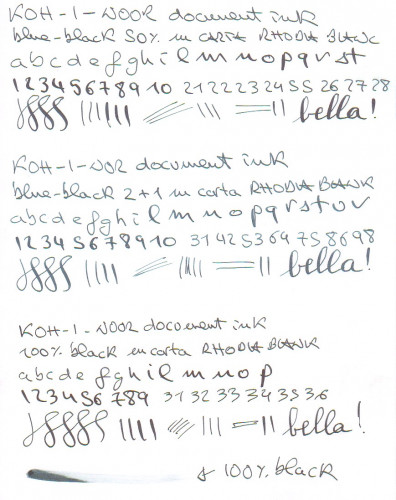 KOH-I-NOOR document ink
blue-black 50% su CARTA RHODIA BLANC
abcdefghilmnopqrst
12345678910 21222324 25 26 27 28
bella!
KOH-I-NOR document ink
blue-black 2+1 su carta RHODIA BLANK
abcdefghilmnopqrstuv
12345678910 31 42 53 64 75 86 98
bella!
KOH-I-NOOR document ink
100% black su carta RHODIA BLANK
abcde fghil mnop
123456 789 31 32 33 34 35 36
bella!
100% black